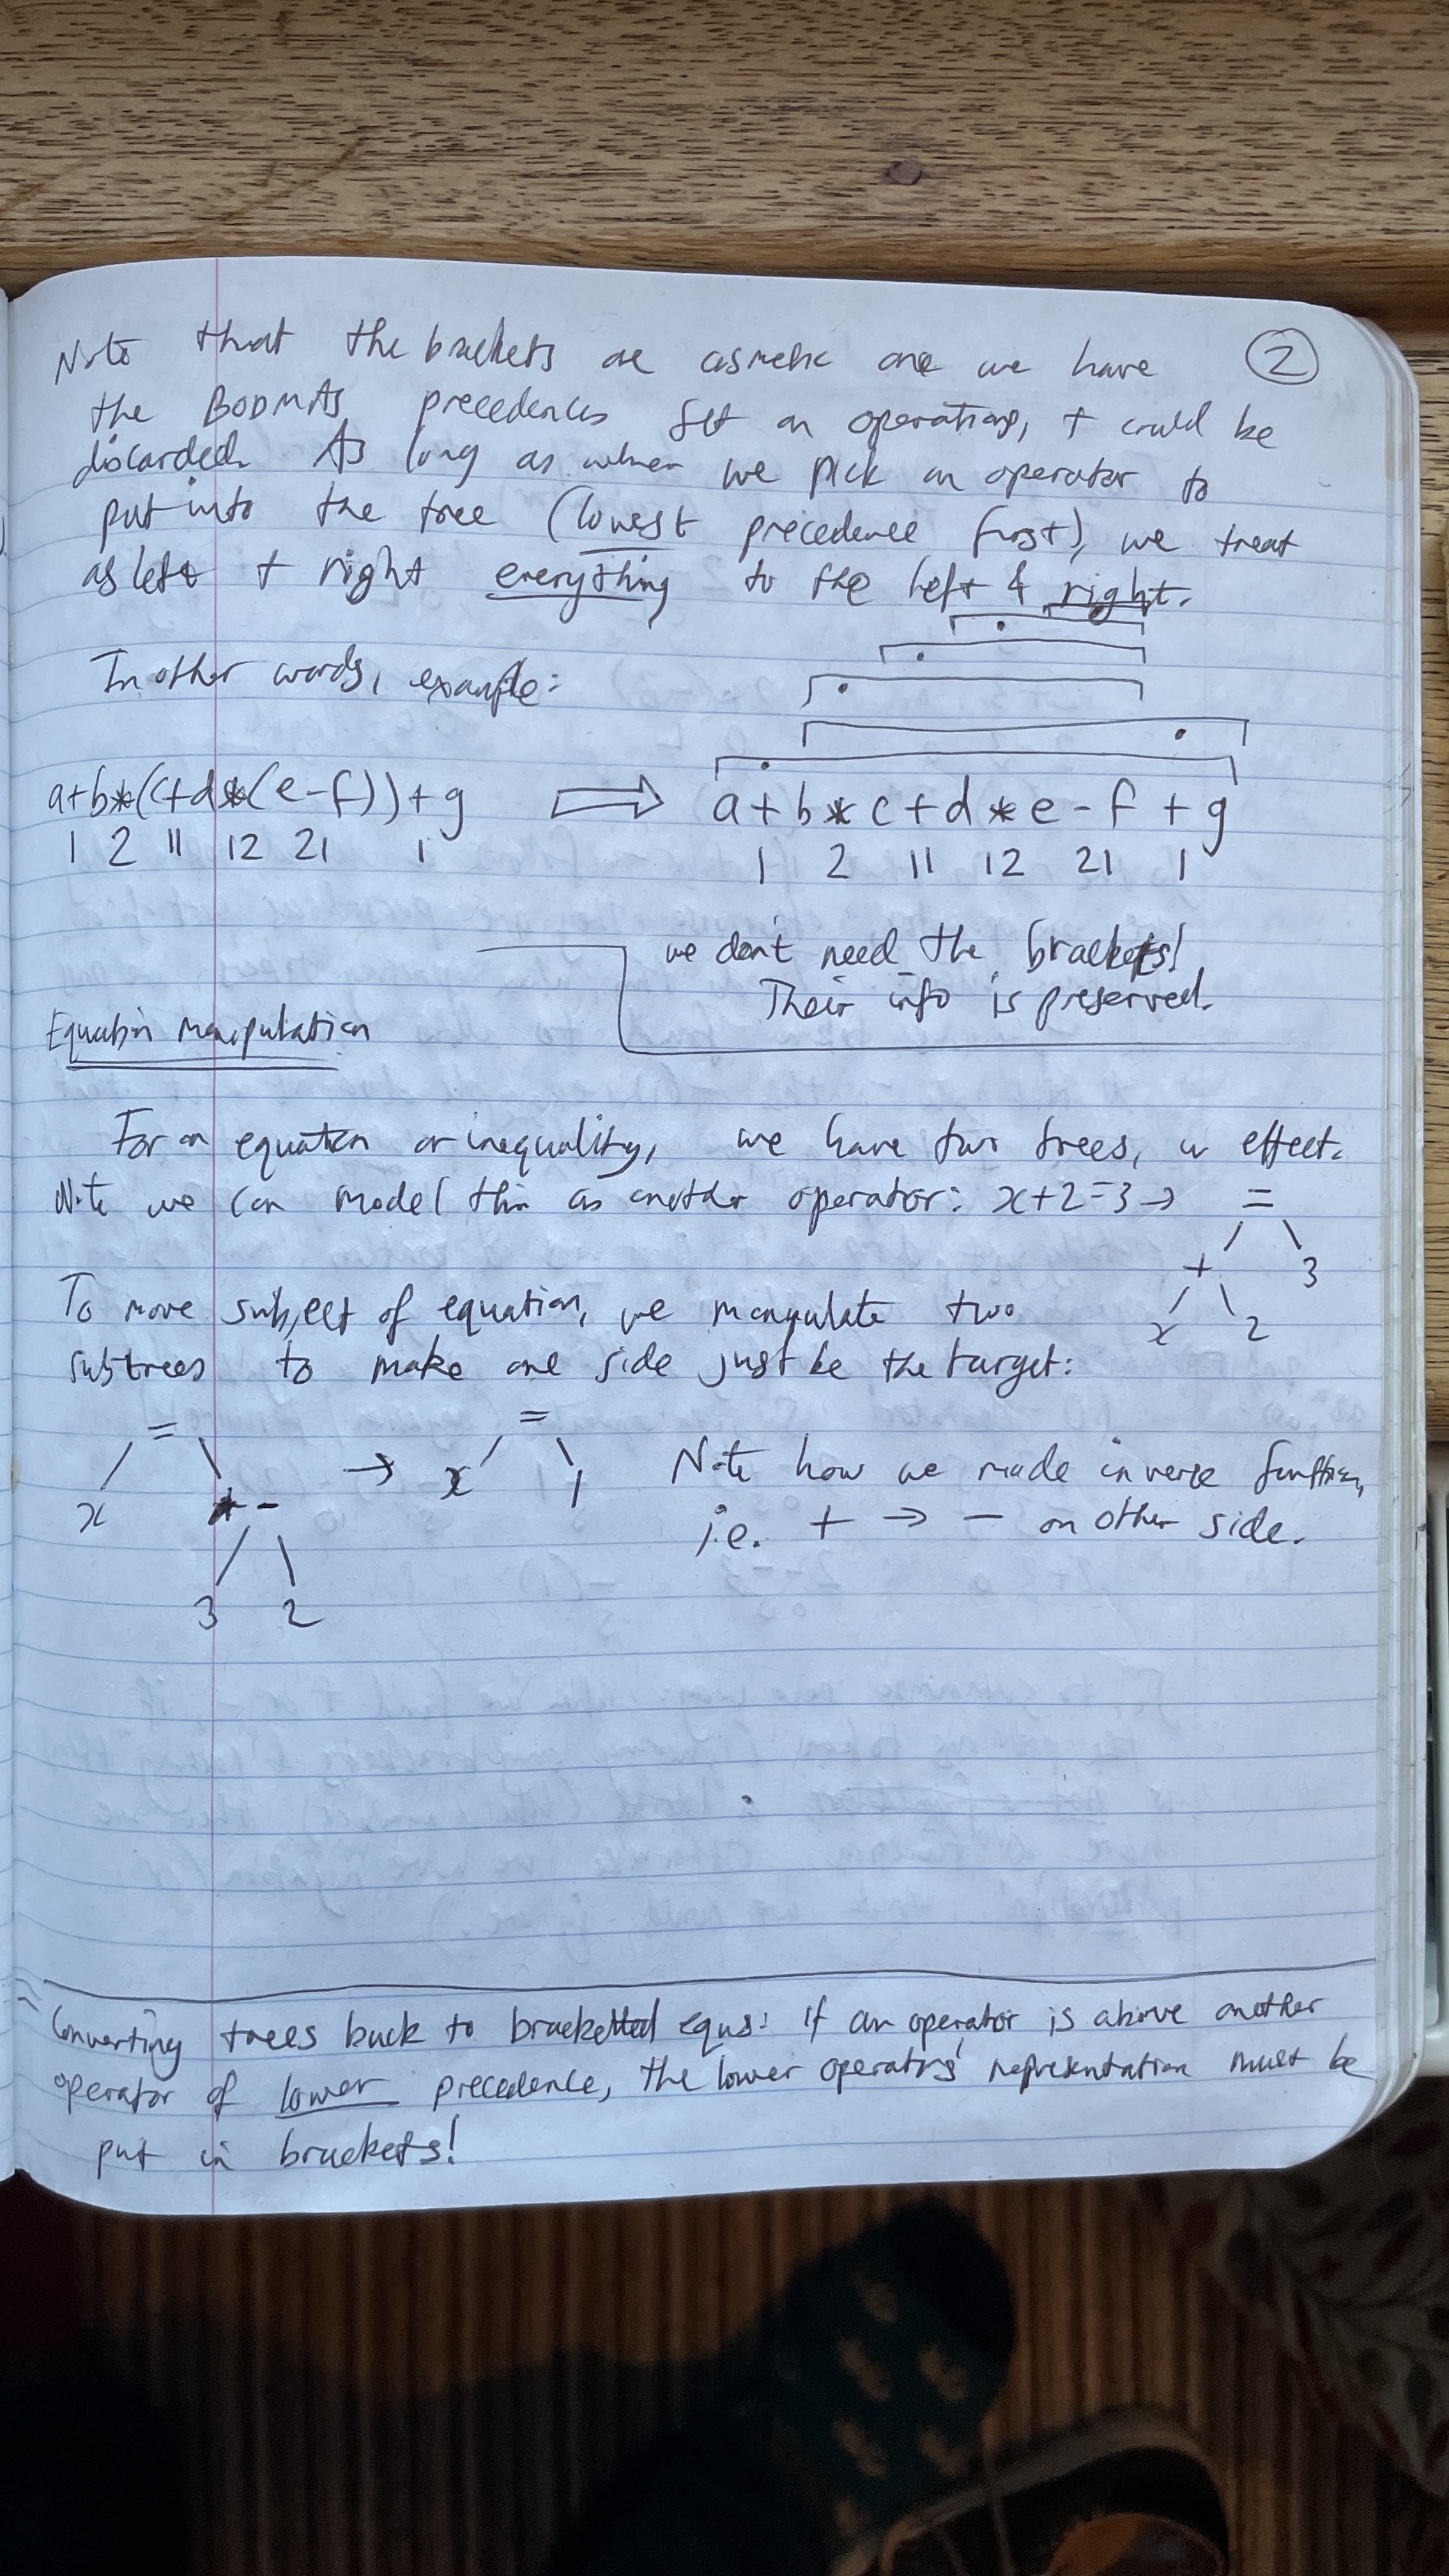 Note that the brackets are cosmetic once we have
②
the BODMAS precedences set on operations, + could be
discarded. As long as when we pick an operator to
put into the tree (lowest precedence first), we treat
as left + right everything to the left & right.
In other words, example:
a+b*(c+d*(e-f))+g ⇒ a+b*c+d*e-f+g
1 2 11 12 21 1 1 2 11 12 21 1
we don't need the brackets!
Their info is preserved.
Equation Manipulation
For an equation or inequality, we have two trees, in effect.
Note we can model this as another operator: x+2=3 → =
+ 3
x 2
To move subject of equation, we manipulate two
subtrees to make one side just be the target:
= → =
x - x 1
3 2
Note how we made inverse function,
i.e. + → - on other side.
Converting trees back to bracketted equs: if an operator is above another
operator of lower precedence, the lower operators' representation must be
put in brackets!